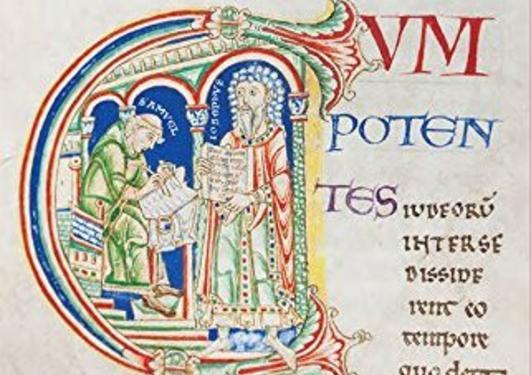 CUM
POTEN
TES IUDEORŪ
INTERSE
DISSIDE
rent eo
tempore
SAMUEL
IOSEPHUS